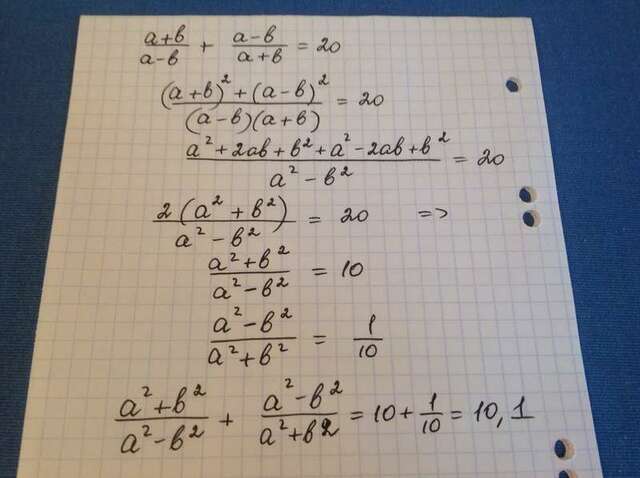 (a+b)/(a-b) + (a-b)/(a+b) = 20
((a+b)² + (a-b)²)/((a-b)(a+b)) = 20
(a² + 2ab + b² + a² - 2ab + b²)/(a² - b²) = 20
2(a² + b²)/(a² - b²) = 20 =>
(a² + b²)/(a² - b²) = 10
(a² - b²)/(a² + b²) = 1/10
(a² + b²)/(a² - b²) + (a² - b²)/(a² + b²) = 10 + 1/10 = 10,1